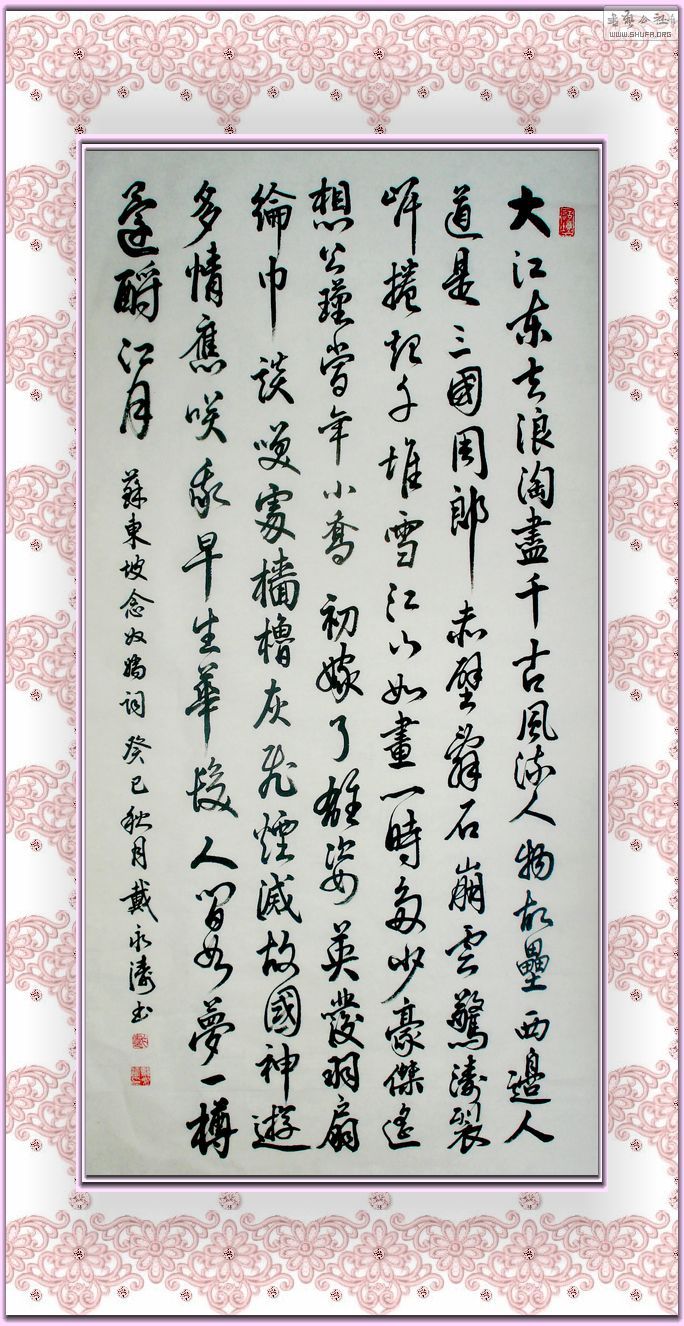 大江東去浪淘盡千古風流人物故壘西邊人
道是三國周郎赤壁亂石崩雲驚濤裂
岸捲起千堆雪江山如畫一時多少豪傑遙
想公瑾當年小喬初嫁了雄姿英發羽扇
綸巾談笑處檣櫓灰飛煙滅故國神遊
多情應笑我早生華髮人間如夢一樽
還酹江月
蘇東坡念奴嬌詞癸巳秋月戴永濤书
WWW.SHUFA.ORG